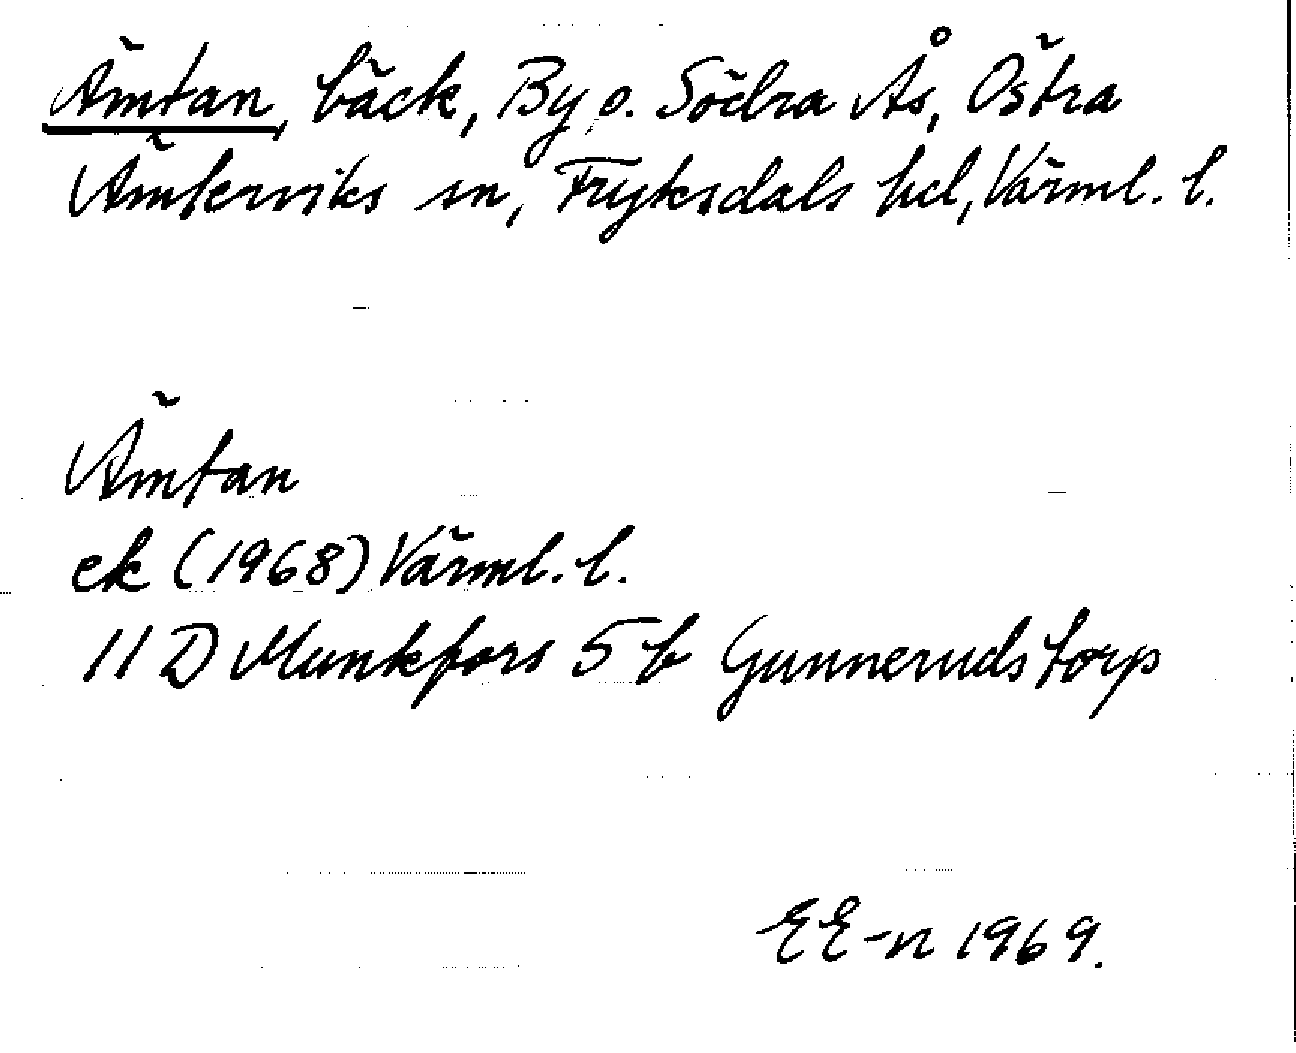 Ämtan, bäck, By o. Södra Ås, Östra
Ämterviks sn, Fryksdals hd, Värml. l.
Ämtan
ek (1968) Värml. l.
11 D Munkfors 5 b Gunnerudstorp
EE-n 1969.